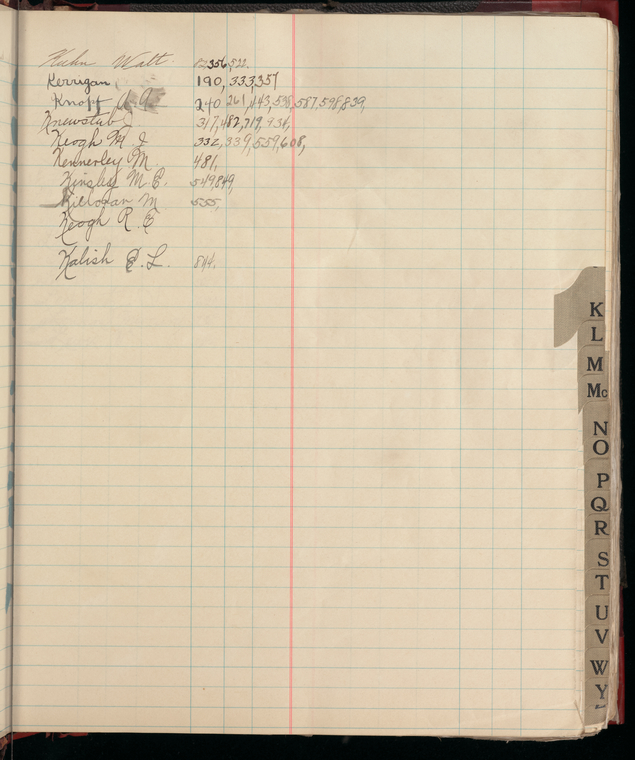 Kuhn Walt. 12,356,522.
Kerrigan, 190,333,357
Knopf A A 240 261,443,538,587,598,839,
Knewstub J 317,482,719,934,
Keogh M J 332,339,559,608,
Kennerley M 481,
Kinsley M E. 549,849,
Killoran M 555,
Keogh R. E
Kalish E. L. 844,
K
L
M
Mc
N
O
P
Q
R
S
T
U
V
W
Y